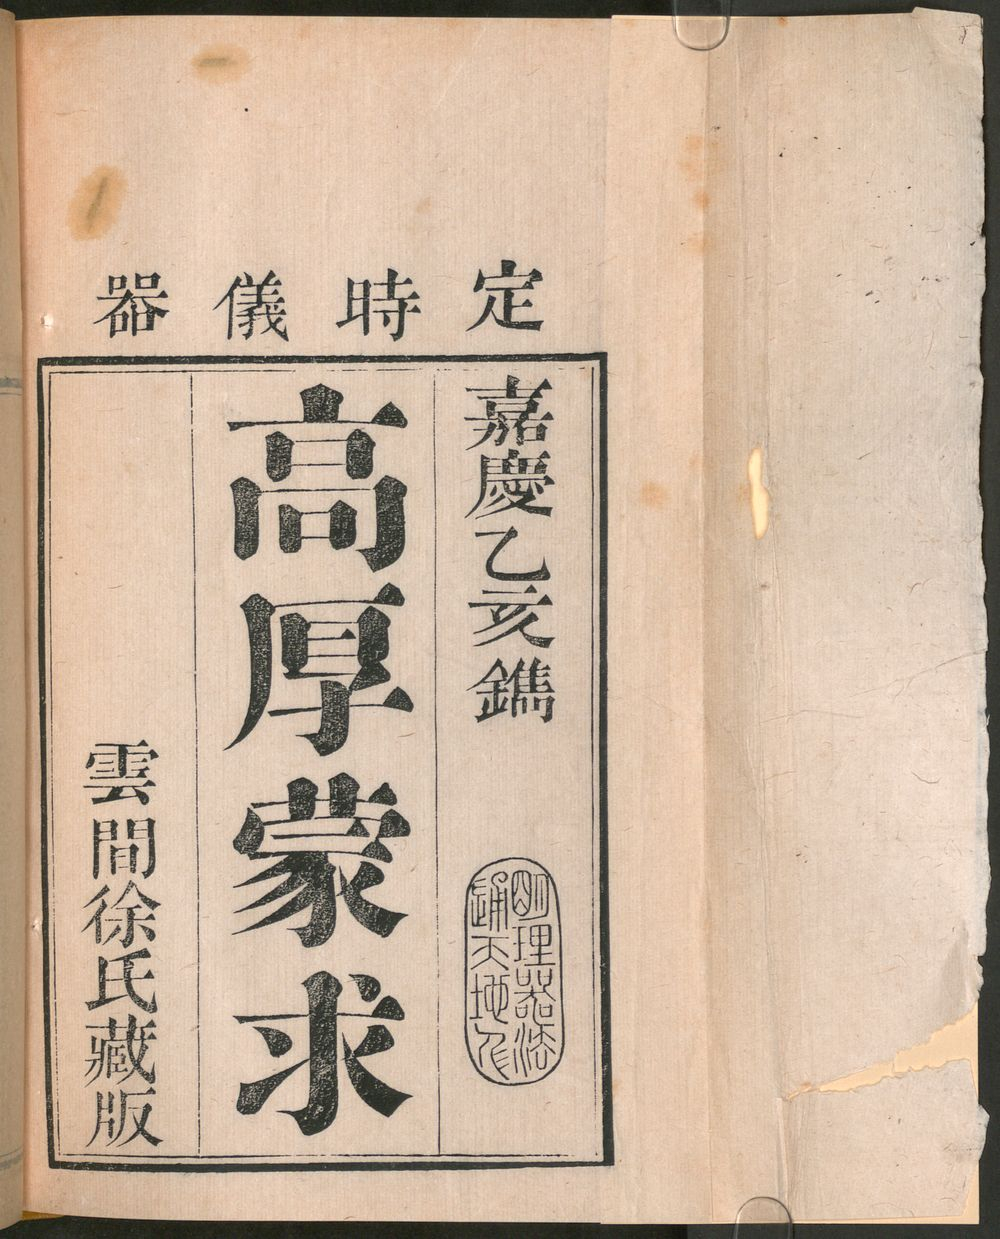 定時儀器
嘉慶乙亥鐫
明理器法
通天地人
高厚蒙求
雲間徐氏藏版